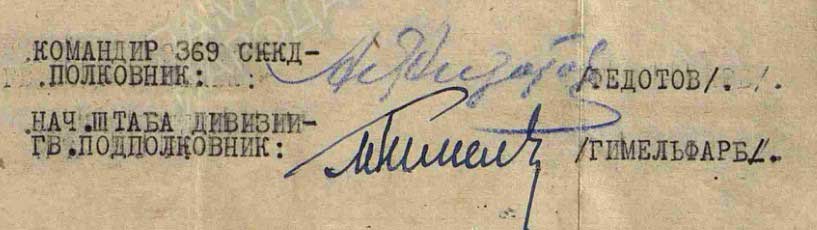 .КОМАНДИР 369 СККД-
.ПОЛКОВНИК: /ФЕДОТОВ/.
.НАЧ.ШТАБА ДИВИЗИИ-
ГВ.ПОДПОЛКОВНИК: /ГИМЕЛЬФАРБ/.